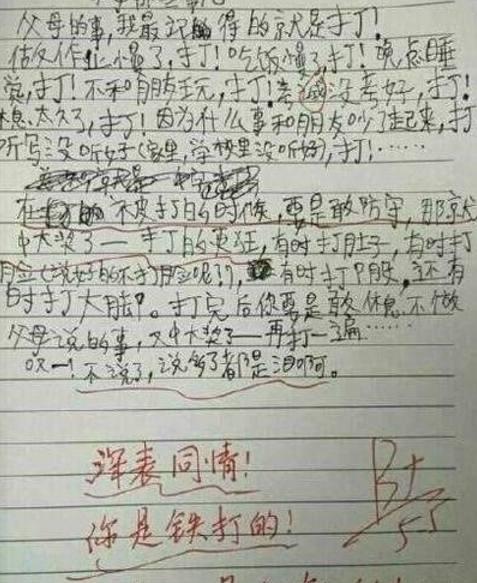 父母的事,我最记得的就是打!
做作业慢了,打!吃饭慢了,打!晚点睡
觉,打!不和朋友玩,打!考试没考好,打!
休息太久了,打!因为什么事和朋友吵了起来,打
听写没听好(家里,学校里没听好),打!……
在 被打的时候,要是敢防守,那就
中大奖了——打的更狂,有时打肚子,有时打
脸(说好的不打脸呢?),有时打 腿,还有
时打大腿。打完后你要是敢休息不做
父母说的事,又中大奖了——再打一遍……
哎—!不说了,说多了都是泪啊。
深表同情!
你是铁打的!
B+